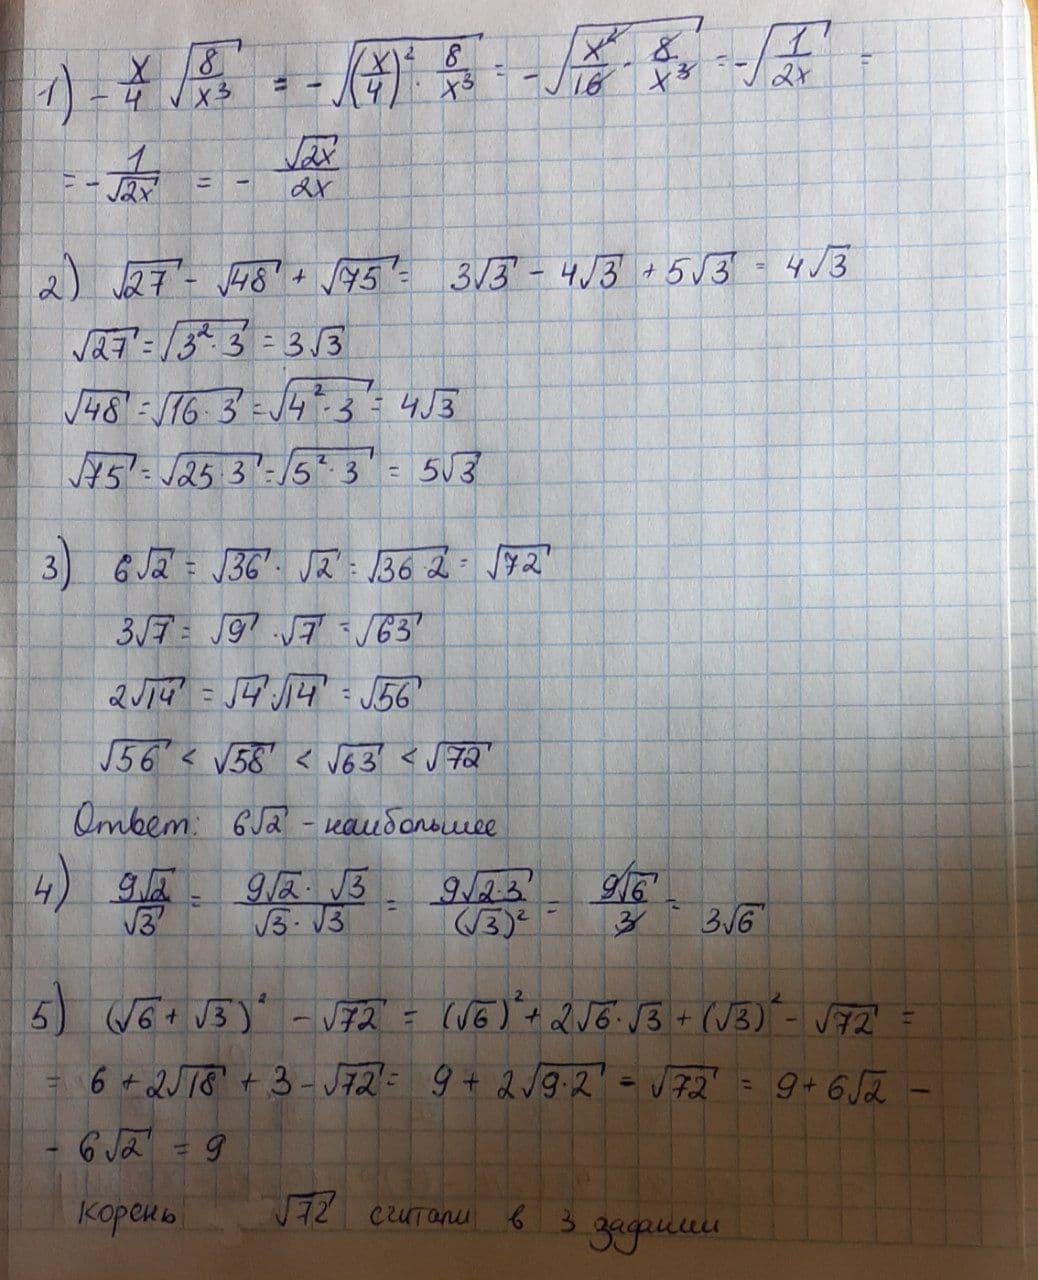 1) - x/4 √(8/x³) = - √((x/4)² · 8/x³) = - √(x²/16 · 8/x³) = - √(1/2x) =
= - 1/√2x = - √2x/2x
2) √27 - √48 + √75 = 3√3 - 4√3 + 5√3 = 4√3
√27 = √(3² · 3) = 3√3
√48 = √(16 · 3) = √(4² · 3) = 4√3
√75 = √(25 · 3) = √(5² · 3) = 5√3
3) 6√2 = √36 · √2 = √(36 · 2) = √72
3√7 = √9 · √7 = √63
2√14 = √4 · √14 = √56
√56 < √58 < √63 < √72
Ответ: 6√2 - наибольшее
4) 9√2/√3 = 9√2 · √3/√3 · √3 = 9√(2·3)/(√3)² = 9√6/3 = 3√6
5) (√6 + √3)² - √72 = (√6)² + 2√6 · √3 + (√3)² - √72 =
= 6 + 2√18 + 3 - √72 = 9 + 2√(9·2) = √72 = 9 + 6√2 -
- 6√2 = 9
Корень √72 считали в 3 задании